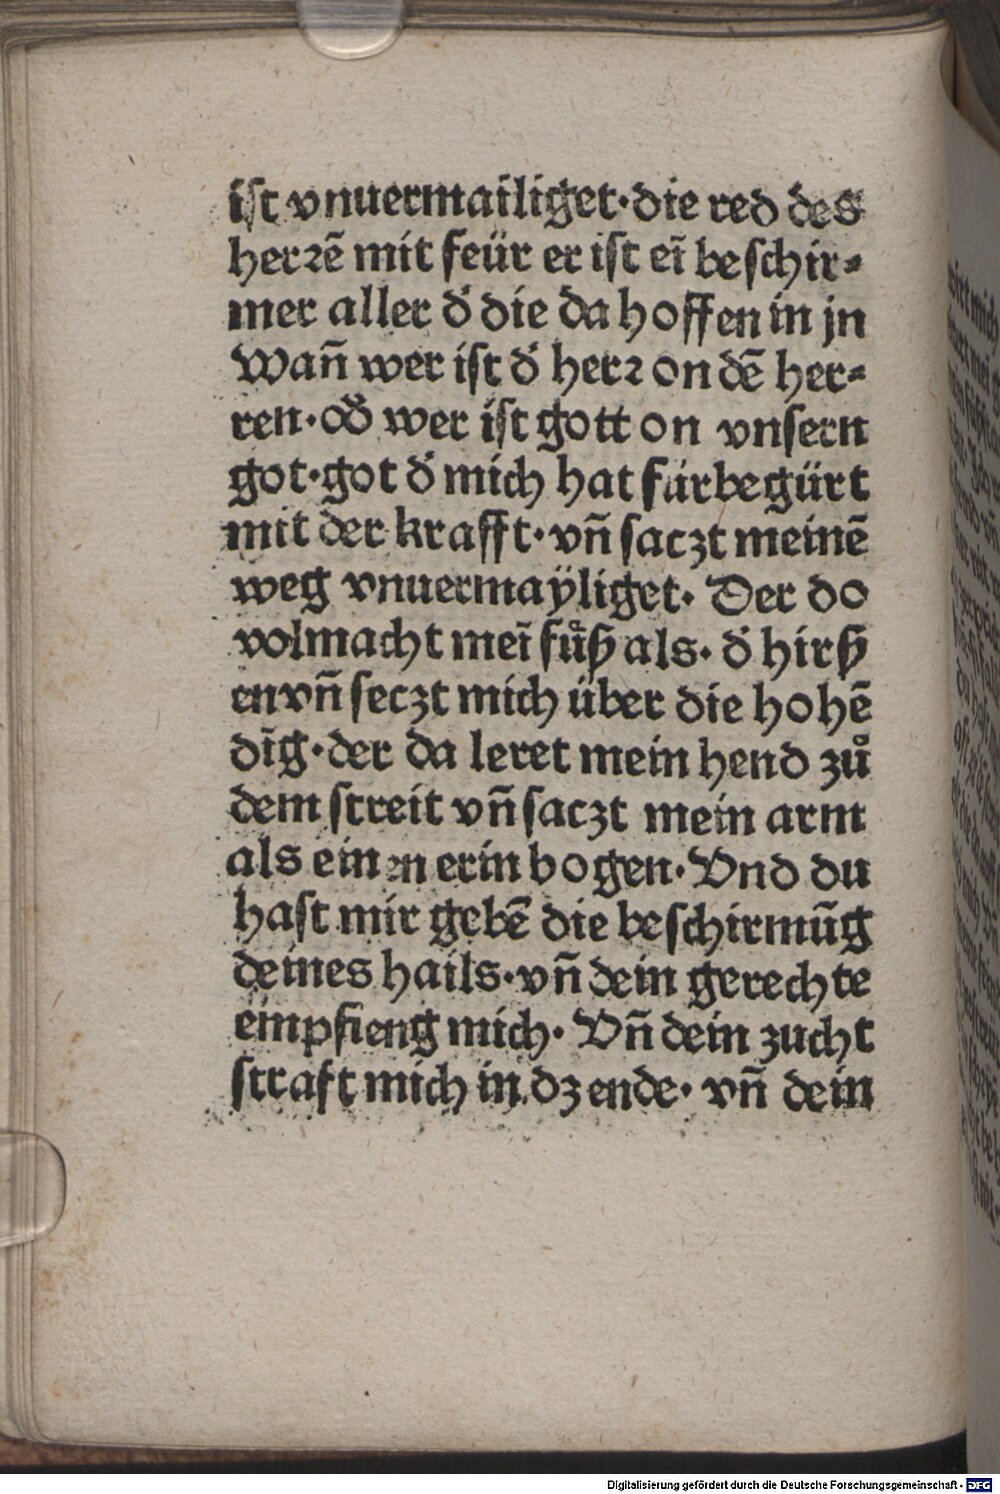 ist vnuermailiget·die red des
herꝛē mit feür er ist eī beschir⸗
mer aller d̕ die da hoffen in jn
Wañ wer ist d̕ herꝛ on dē her⸗
ren·od̕ wer ist gott on vnsern
got·got d̕ mich hat fürbegürt
mit der krafft·vñ saczt meinē
weg vnuermaÿliget· Der do
volmacht meī fuͤß als· d̕ hirß
en vñ seczt mich über die hohē
dīg·der da leret mein hend zuͦ
dem streit vñ saczt mein arm
als einen erin bogen·Vnd du
hast mir gebē die beschirmūg
deines hails·vñ dein gerechte
empfieng mich· Vñ dein zucht
straft mich in dz ende· vñ dein
Digitalisierung gefördert durch die Deutsche Forschungsgemeinschaft - DFG